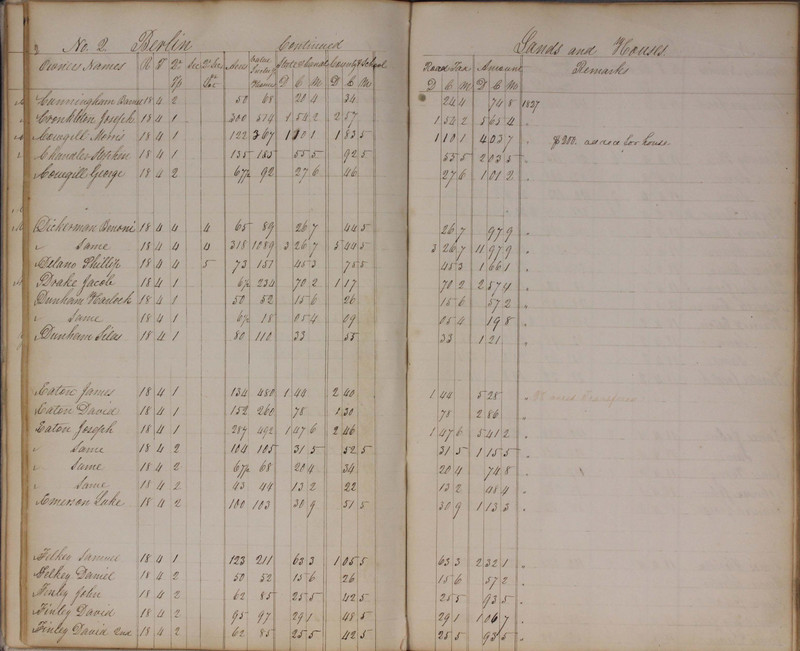 2 No. 2 Berlin Continued Lands and Houses
Owners Names R T Sec Acres State & Canal County & School Road Tax Amount Remarks
Tp D C M D C M D C M D C M
Cunningham 18 4 2 50 68 20 4 34 24 4 74 8 1837
Joseph 18 4 1 300 514 1 54 2 2 57 1 54 2 5 65 4
Cowgill Morris 18 4 1 122 367 1 10 1 1 83 5 1 10 1 4 03 7 $200 for house
Chandler Stephen 18 4 1 135 185 55 5 92 5 55 5 2 03 5
Cowgill George 18 4 2 67½ 92 27 6 46 27 6 1 01 2
Dickerman Benoni 18 4 4 4 65 89 26 7 44 5 26 7 97 9
" Same 18 4 4 4 318 1089 3 26 7 5 44 5 3 26 7 11 97 9
Delano Phillip 18 4 4 5 73 151 45 3 75 5 45 3 1 66 1
Drake Jacob 18 4 1 6½ 234 70 2 1 17 70 2 2 57 4
Dunham 18 4 1 50 52 15 6 26 15 6 57 2
" Same 18 4 1 6½ 18 05 4 09 05 4 19 8
Dunham Silas 18 4 1 80 110 33 55 33 1 21
Eaton James 18 4 1 134 480 1 44 2 40 1 44 5 28
Eaton David 18 4 1 152 260 78 1 30 78 2 86
Eaton Joseph 18 4 1 287 492 1 47 6 2 46 1 47 6 5 41 2
" Same 18 4 2 104 105 31 5 52 5 31 5 1 15 5
" Same 18 4 2 67½ 68 20 4 34 20 4 74 8
" Same 18 4 2 43 44 13 2 22 13 2 48 4
Emerson Luke 18 4 2 100 103 30 9 51 5 30 9 1 13 3
Filkey Samuel 18 4 1 123 211 63 3 1 05 5 63 3 2 32 1
Filkey Daniel 18 4 2 50 52 15 6 26 15 6 57 2
Finley John 18 4 2 62 85 25 5 42 5 25 5 93 5
Finley David 18 4 2 95 97 29 1 48 5 29 1 1 06 7
Finley David 2nd 18 4 2 62 85 25 5 42 5 25 5 93 5